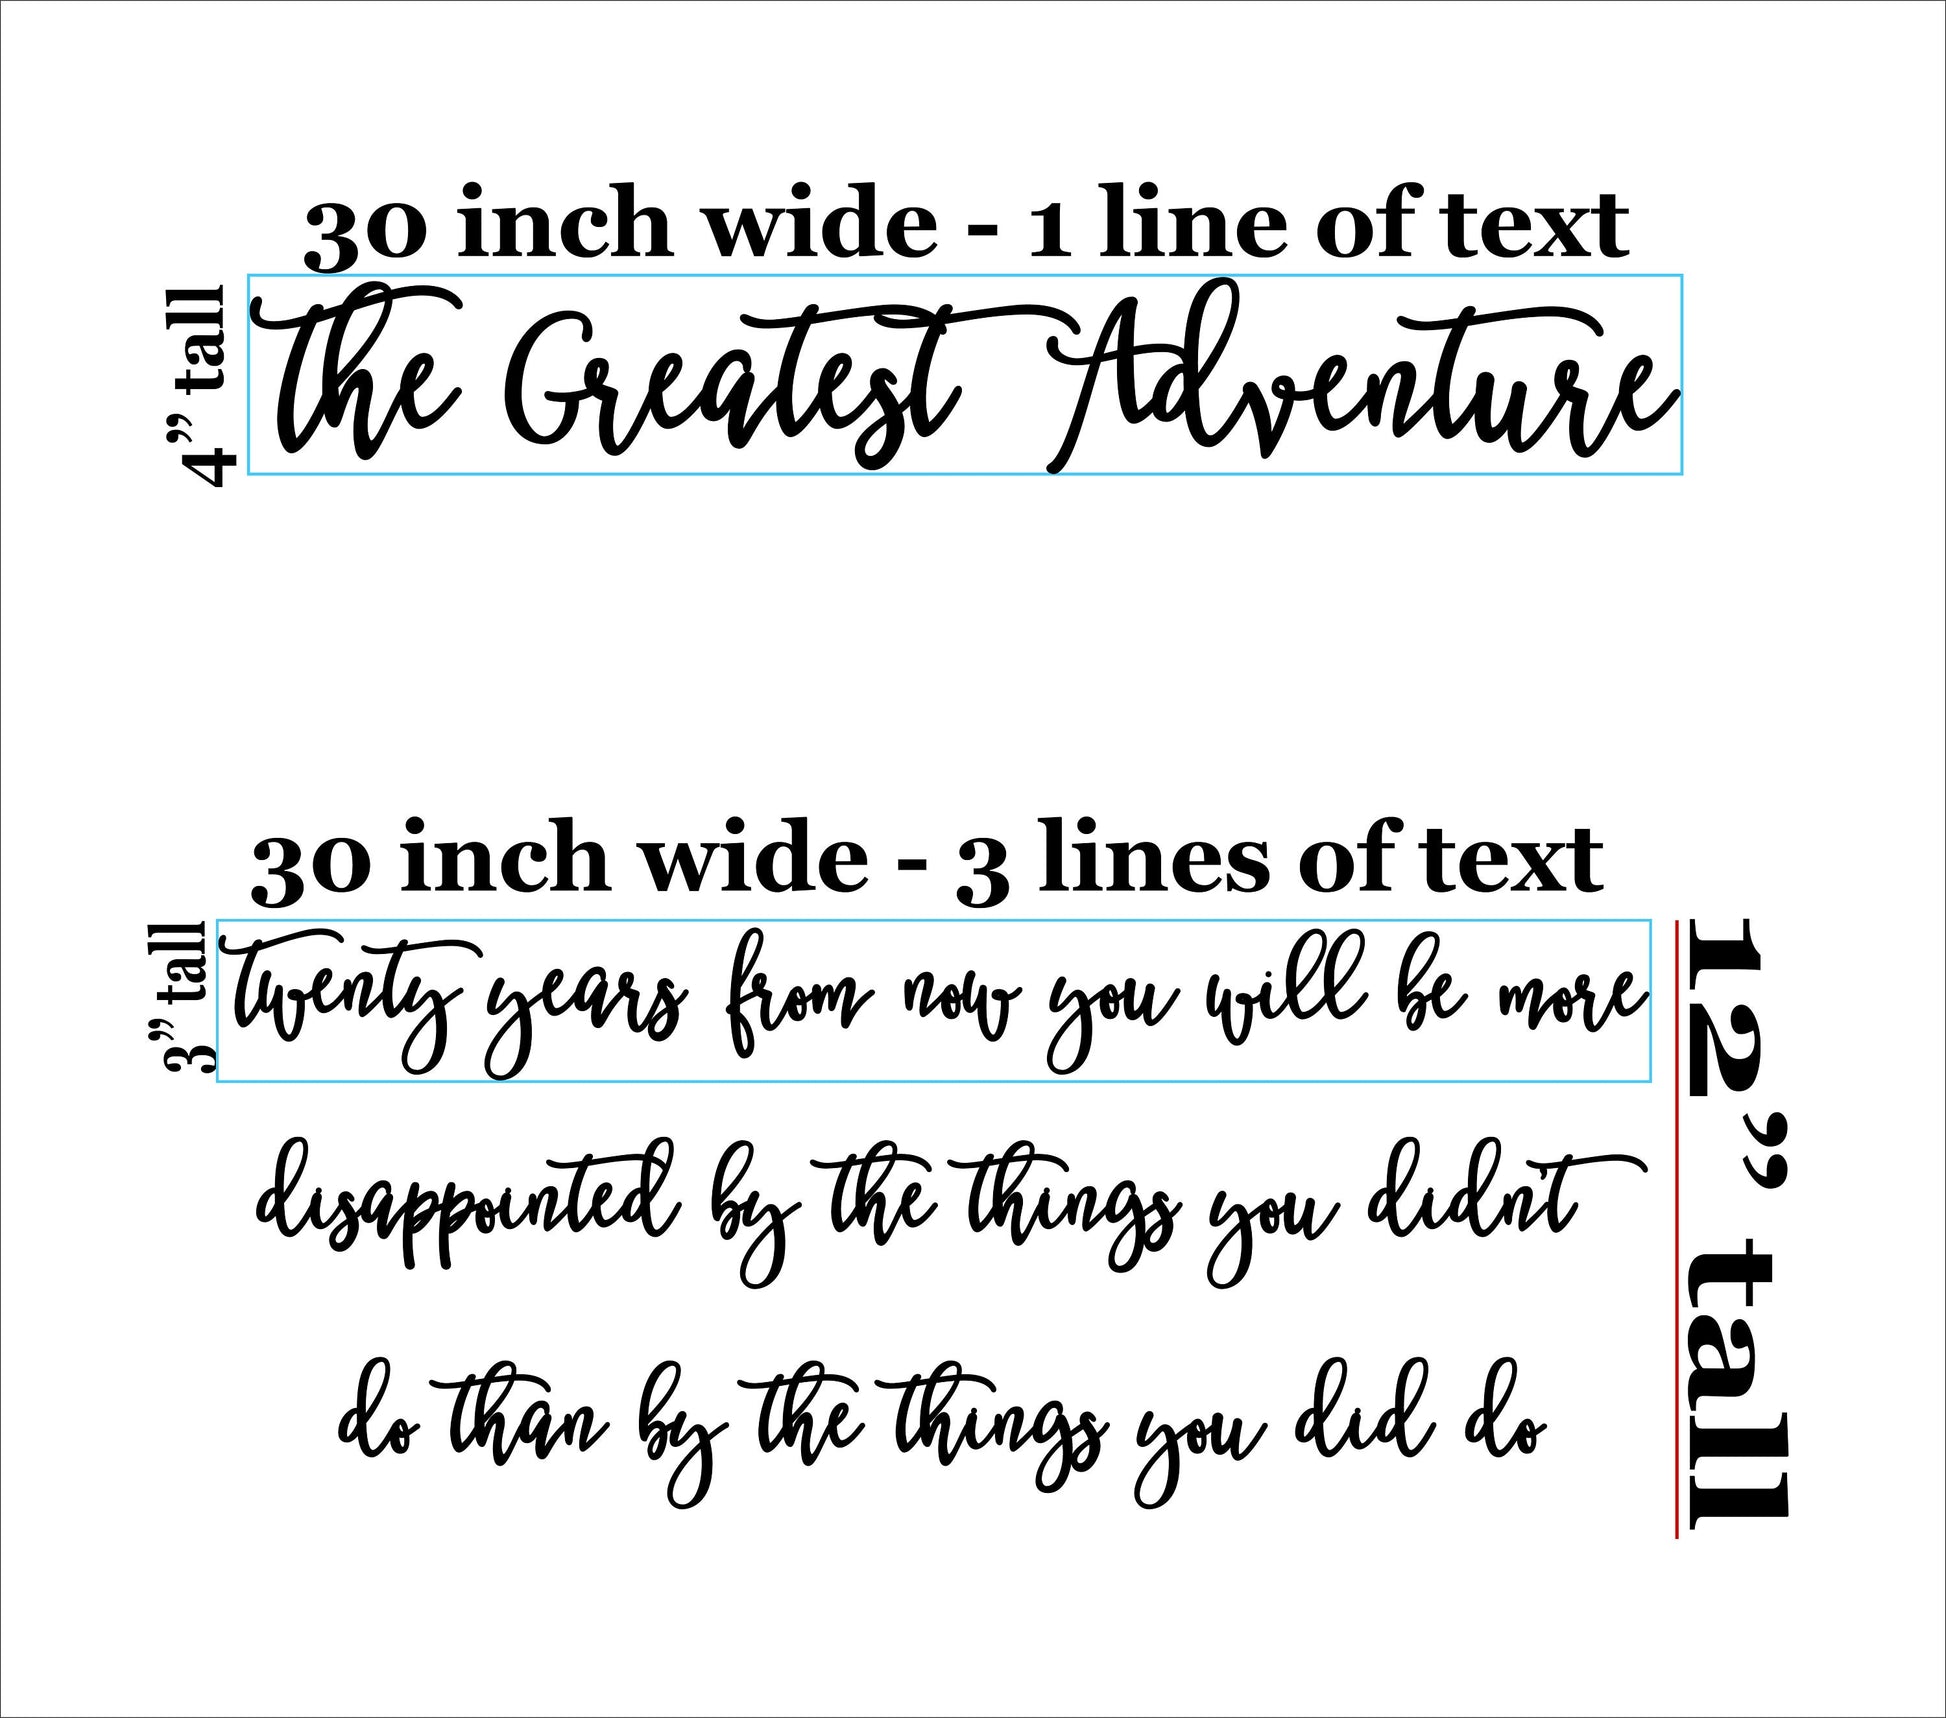 30 inch wide - 1 line of text
4” tall
the Greatest Adventure
30 inch wide - 3 lines of text
3” tall
twenty years from now you will be more
disappointed by the things you didn't
do than by the things you did do
12” tall